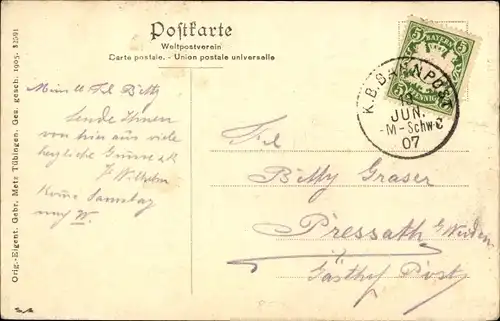 Postkarte
Weltpostverein
Carte postale. - Union postale universelle
BAYERN
5
5
PFENNIG
K.B.BAHNPOST
JUN.
-M-Schw
07
Mein l. Frl Betty
Sende Ihnen
von hier aus viele
herzliche Grüsse
Wilhelm
Komme Samstag
nach W.
Frl
Betty Graser
Pressath
Gasthof Post
Orig.-Eigent. Gebr. Metz Tübingen. Ges. gesch. 1905.